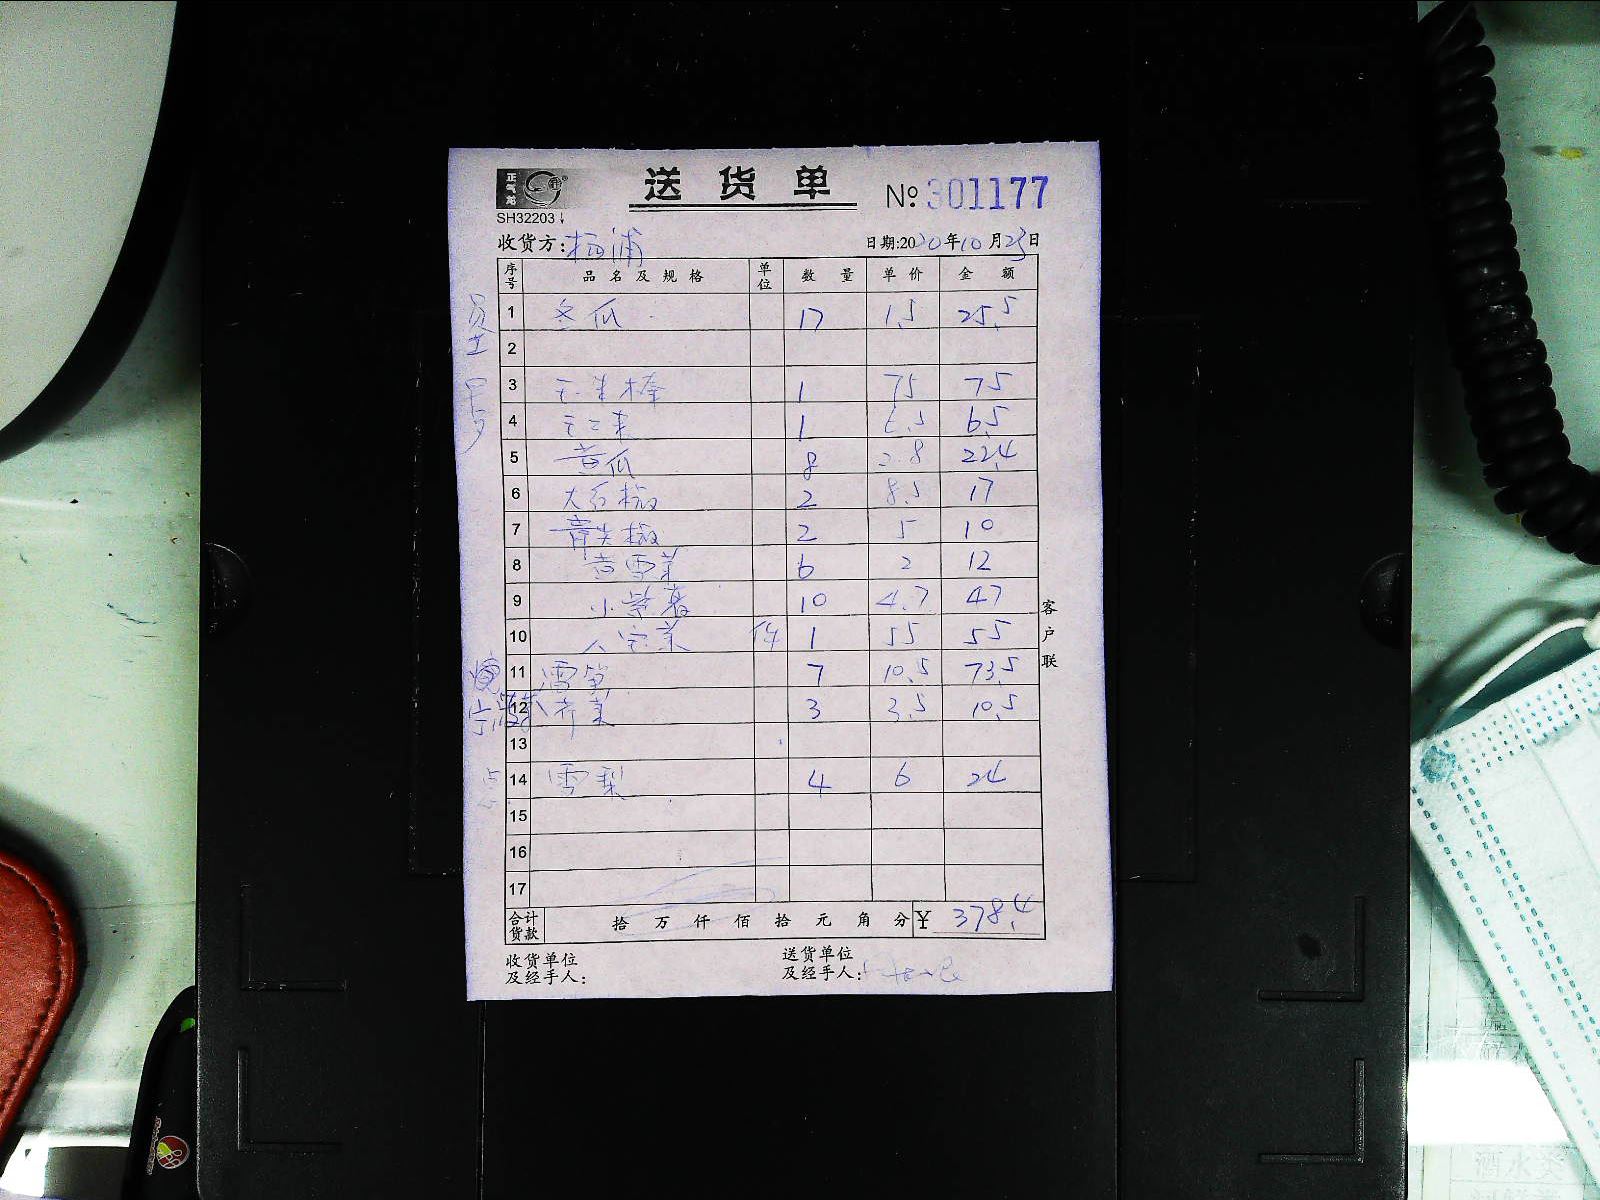 正气龙
送货单 No 301177
SH32203
收货方:杨浦 日期:2020年10月23日
序号 品名及规格 单位 数量 单价 金额
1 冬瓜 17 1.5 25.5
2
3 玉米棒 1 75 75
4 玉米 1 6.5 6.5
5 黄瓜 8 2.8 22.4
6 大红椒 2 8.5 17
7 青尖椒 2 5 10
8 雪菜 6 2 12
9 小 10 4.7 47
10 菜 件 1 55 55
11 雪笋 7 10.5 73.5
12 荠菜 3 3.5 10.5
13
14 雪梨 4 6 24
15
16
17
客户联
合计货款 拾万仟佰拾元角分 ¥ 378.4
收货单位及经手人:
送货单位及经手人: